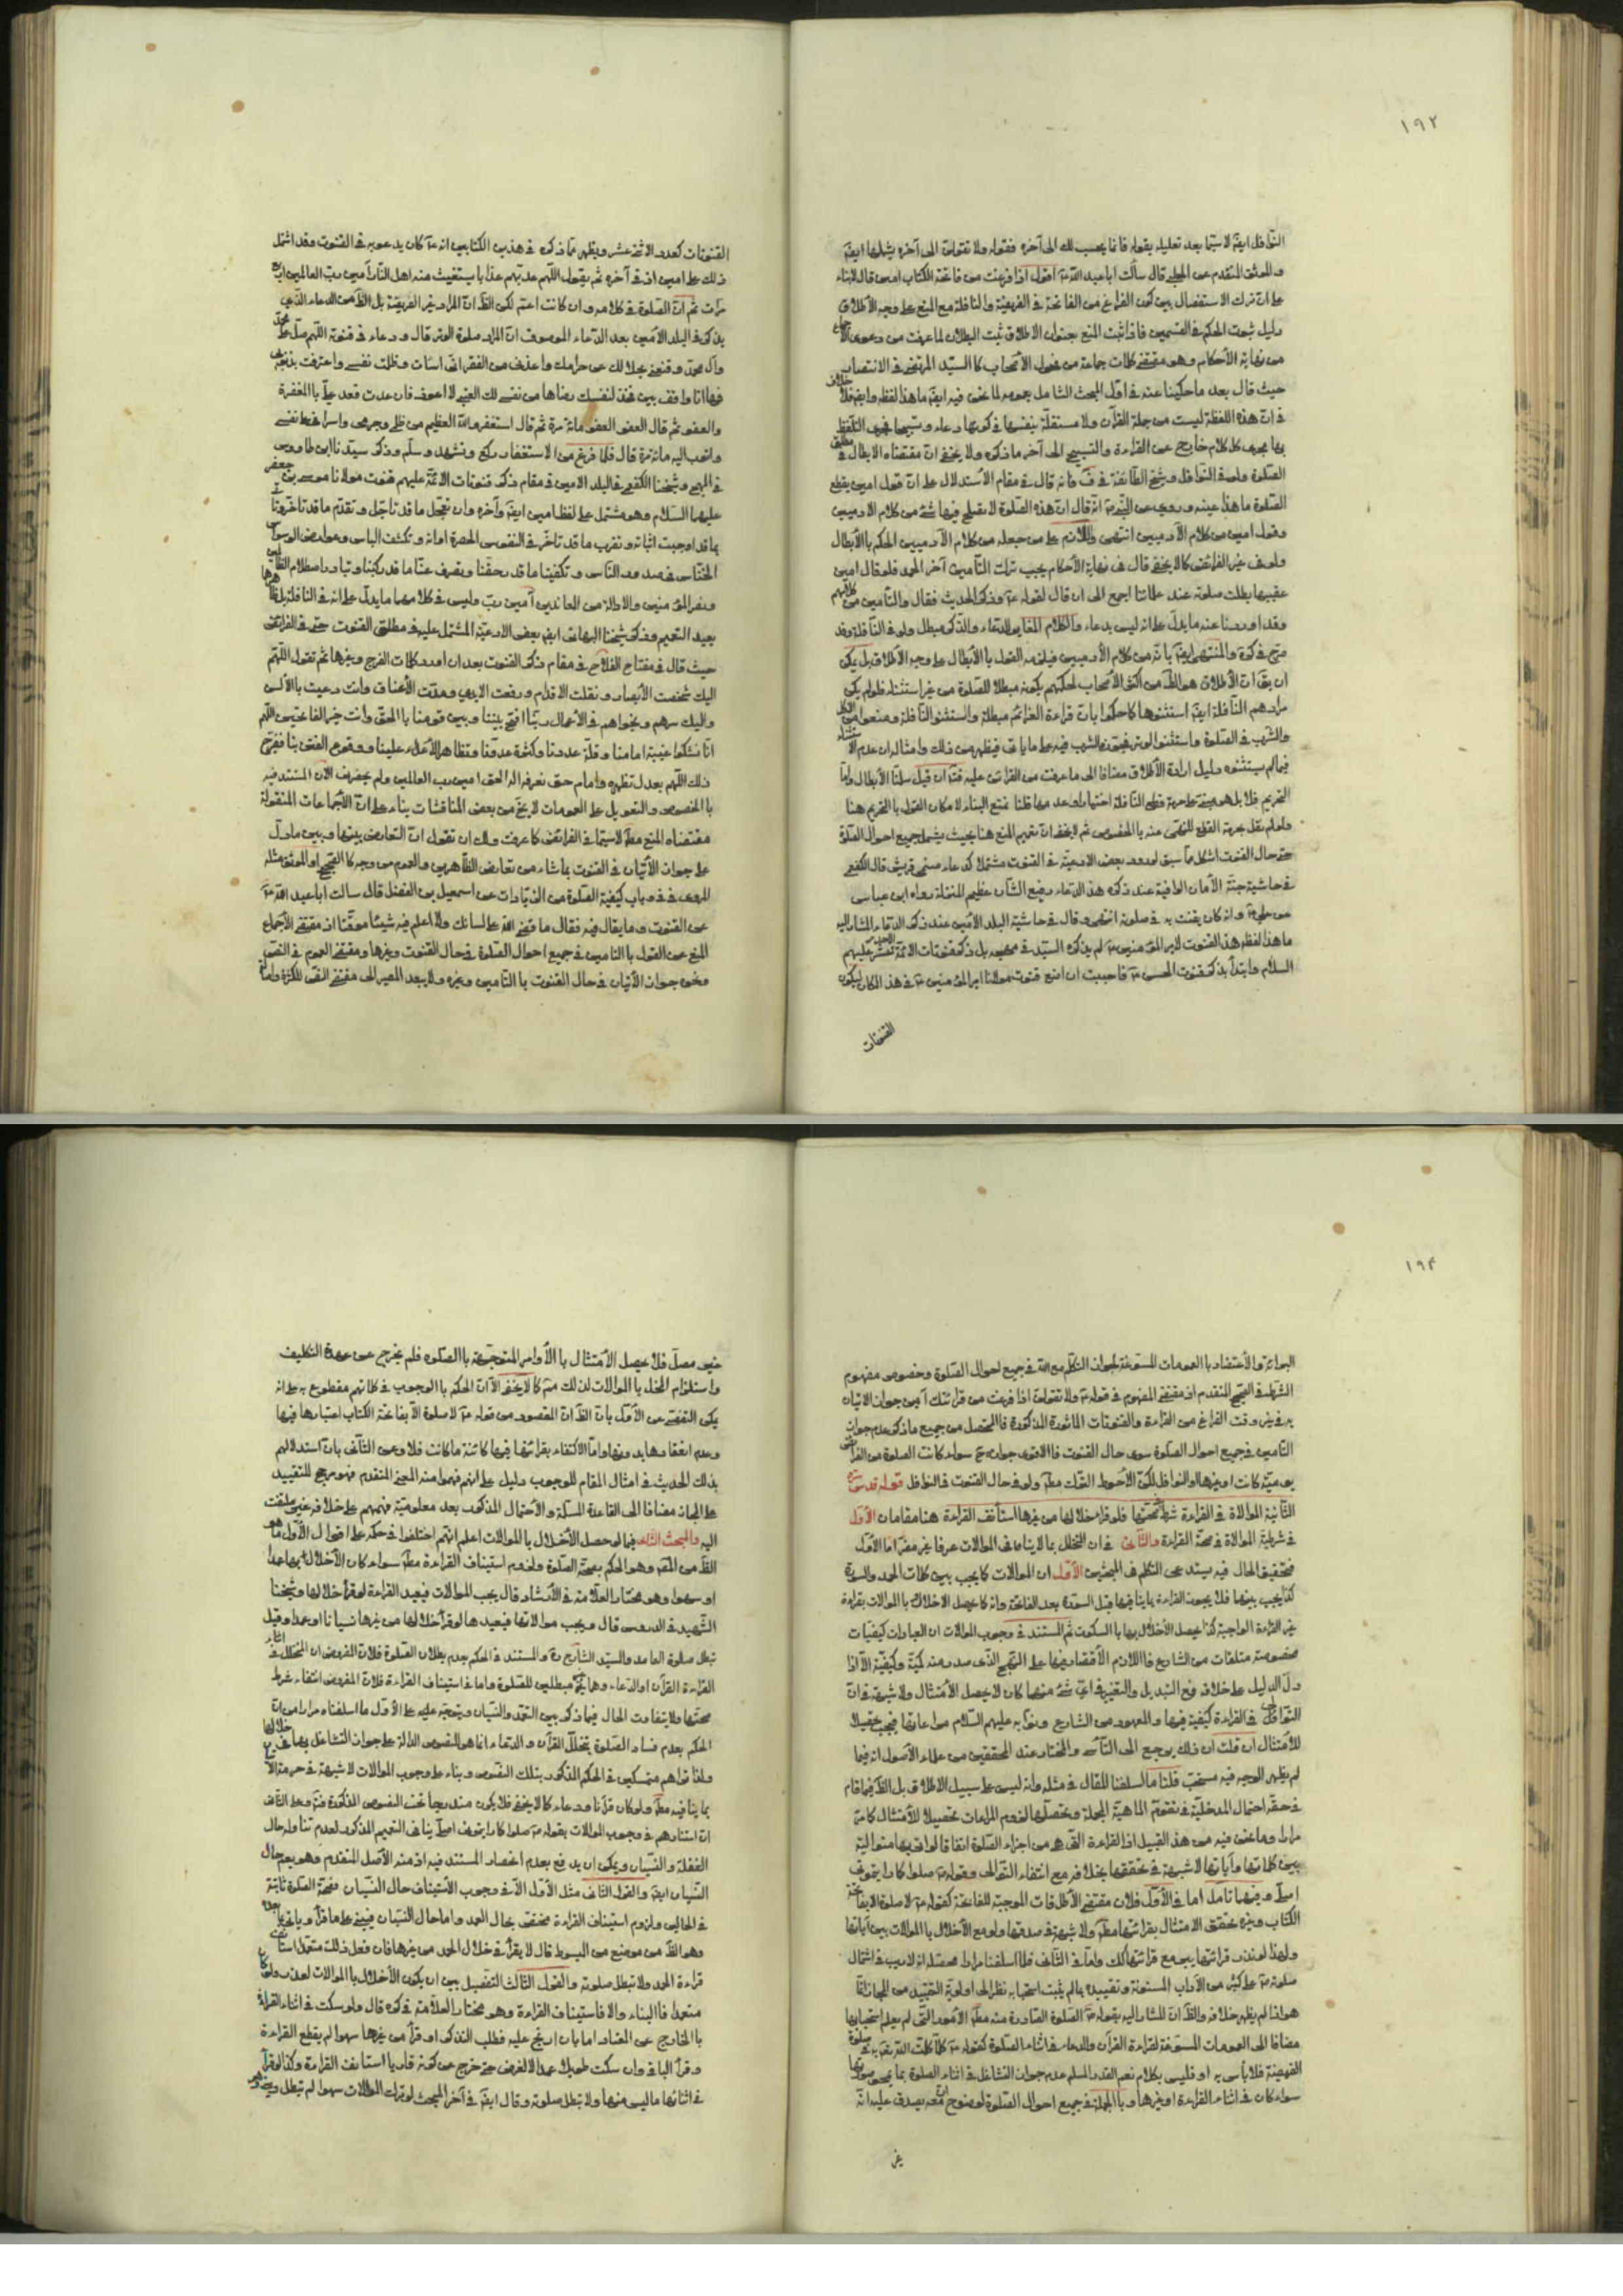 ١٩٢
النوافل ايضا لاسيما بعد تعليله بقوله فانما يحسب لك الى آخره فقوله ولا تقولن الى آخره يشملها ايضا
والموثق المتقدم عن الحلبي قال سألت ابا عبد الله ع اقول اذا فرغت من فاتحة الكتاب امين قال لا بناء
على ان ترك الاستفصال بين كون الفراغ من الفاتحة في الفريضة والنافلة مع المنع على وجه الاطلاق
دليل ثبوت الحكم في القسمين فاذا ثبت المنع بعنوان الاطلاق ثبت البطلان لما عرفت من دعوى الاجماع
من نهاية الأحكام وهو مقتضى كلمات جماعة من فحول الأصحاب كالسيد المرتضى في الانتصار
حيث قال بعد ما حكينا عنه في اول المبحث الشامل بعمومه لما نحن فيه ايضا ما هذا لفظه وايضا فلا خلاف
في ان هذه اللفظة ليست من جملة القرآن ولا مستقلة بنفسها في كونها دعاء وتسبيحا فجرى التلفظ
بها مجرى كل كلام خارج عن القراءة والتسبيح الى آخر ما ذكره ولا يخفى ان مقتضاه الابطال في مطلق
الصلوة ولو في النوافل وشيخ الطائفة في ف فانه قال في مقام الأستدلال على ان قول امين يقطع
الصلوة ما هذا عينه وروي عن النبي ص انه قال ان هذه الصلوة لا يصلح فيها شئ من كلام الآدميين
وقول امين من كلام الآدميين انتهى واللازم على من جعله من كلام الآدميين الحكم بالأبطال
ولو في غير الفرائض كما لا يخفى قال في نهاية الأحكام يجب ترك التأمين آخر الحمد فلو قال امين
عقيبها بطلت صلوته عند علمائنا اجمع الى ان قال لقوله ع وذكر الحديث فقال والتأمين من كلامهم
وقد اوردنا عنه ما يدل على انه ليس بدعاء والكلام المغاير للدعاء والذكر مبطل ولو في النافلة وقد
صرح في كره والمنتهى ايضا بانه من كلام الآدميين فيلزمه القول بالأبطال على وجه الأطلاق بل يمكن
ان يق ان الأطلاق هو الظ من اكثر الأصحاب لحكمهم بكونه مبطلا للصلوة من غير استثناء فلو لم يكن
مرادهم النافلة ايضا استثنوها كما حكموا بان قراءة العزائم مبطلة واستثنوا النافلة ومنعوا من الاكل
والشرب في الصلوة واستثنوا الوتر فجوزوا الشرب فيه على ما يأتي فيظهر من ذلك وامثاله ان عدم الاستثناء
فيما لم يستثنوه دليل ارادة الأطلاق مضافا الى ما عرفت من القرائن عليه فت ان قيل سلمنا الأبطال واما
التحريم فلا بل هو مبني على حرمة قطع النافلة اختيارا وعدمها قلنا نمنع البناء لامكان القول بالتحريم هنا
ولو لم نقل بحرمة القطع للنهي عنه بالخصوص ثم لا يخفى ان تعميم المنع هنا بحيث يشمل جميع احوال الصلوة
حتى حال القنوت اشكل مما سبق لورود بعض الادعية في القنوت مشتملا كدعاء صنمي قريش قال الكفعمي
في حاشية جنة الأمان الواقية عند ذكره هذا الدعاء رفيع الشأن عظيم المنزلة رواه ابن عباس
عن علي ع وانه كان يقنت به في صلوته انتهى وقال في حاشية البلد الأمين عند ذكر الدعاء المشار اليه
ما هذا لفظه هذا القنوت لامير المؤمنين ع لم يذكره السيد في مهجه بل ذكر قنوتات الائمة الاحد عشر عليهم
السلام وابتدأ بذكر قنوت الحسن ع فاحببت ان اضع قنوت مولانا امير المؤمنين ع في هذا المكان ليكون
القنوتات
القنوتات كعدد الاثنى عشر ويظهر مما ذكره في هذين الكتابين انه ع كان يدعو به في القنوت وقد اشتمل
ذلك على امين اذ في آخره ثم يقول اللهم عذبهم عذابا يستغيث منه اهل النار آمين رب العالمين اربع
مرات ثم ان الصلوة في كلامه وان كانت اعم لكن الظ ان المراد غير الفريضة بل الظ من الدعاء الذي
يذكر في البلد الأمين بعد الدعاء الموصوف ان المراد صلوة الوتر قال ودعاء في قنوته اللهم صل على محمد
وآل محمد وقنعني بحلالك عن حرامك واعذني من الفقر اني اسأت وظلمت نفسي واعترفت بذنوبي
فها انا واقف بين يديك فخذ لنفسك رضاها من نفسي لك العتبى لا اعود فان عدت فعد علي بالمغفرة
والعفو ثم قال العفو العفو مائة مرة ثم قال استغفر الله العظيم من ظلمي وجرمي واسرافي على نفسي
واتوب اليه مائة مرة قال فلما فرغ من الاستغفار ركع وتشهد وسلم وذكر سيدنا ابن طاووس
في المهج وشيخنا الكفعمي في البلد الامين في مقام ذكر قنوتات الائمة عليهم قنوت مولانا موسى بن جعفر
عليهما السلام وهو مشتمل على لفظ امين ايضا وآخره وان تعجل ما قد تأجل وتقدم ما قد تأخر
بما قد اوجبت اثباته وتقرب ما قد تأخر في النفوس الحصرة اوانه وتكشف الباس وعوارض الوسواس
الخناس في صدور الناس وتكفينا ما قد رهقنا وتصرف عنا ما قد ركبنا وتبادر اصطلام الظالمين
ونصر المؤمنين والادالة من المعاندين آمين رب وليس في كلامهما ما يدل على انه في النافلة بل ظاهرهما
بعيد التعميم وذكر شيخنا البهائي ايضا بعض الادعية المشتمل عليه في مطلق القنوت حتى في الفرائض
حيث قال في مفتاح الفلاح في مقام ذكر القنوت بعد ان اورد كلمات الفرج وغيرها ثم تقول اللهم
اليك شخصت الأبصار ونقلت الاقدام ورفعت الايدي ومدت الأعناق وانت دعيت بالألسن
واليك سرهم ونجواهم في الأعمال ربنا افتح بيننا وبين قومنا بالحق وانت خير الفاتحين اللهم
انا نشكوا غيبة امامنا وقلة عددنا وكثرة عدونا وتظاهر الأعداء علينا ووقوع الفتن بنا ففرج
ذلك اللهم بعدل تظهره وامام حق تعرفه اله الحق امين رب العالمين ولم يحضرني الآن المستند فيه
بالخصوص والتعويل على العمومات لا يخ من بعض المناقشات بناء على ان الأجماعات المنقولة
مقتضاه المنع مط لاسيما في الفرائض كما عرفت ولك ان تقول ان التعارض بينها وبين ما دل
على جواز الأتيان في القنوت بما شاء من تعارض الظاهرين والعموم من وجه كالصحيح او الموثق مثله
المروي في باب كيفية الصلوة من الزيادات عن اسمعيل بن الفضل قال سألت ابا عبد الله ع
عن القنوت وما يقال فيه فقال ما قضى الله على لسانك ولا اعلم فيه شيئا موقتا اذ مقتضى الأجماع
المنع عن القول بالتامين في جميع احوال الصلوة في حال القنوت وغيرها ومقتضى العموم في النص
ونحوه جواز الأتيان في حال القنوت بالتأمين وغيره ولا يبعد المصير الى مقتضى النص للكثرة واصالة
١٩٣
البرائة والأعتضاد بالعمومات المسوغة لجواز التكلم مع الله في جميع احوال الصلوة وخصوص مفهوم
الشرط في الصحيح المتقدم اذ مقتضى المفهوم في قوله ع ولا تقولن اذا فرغت من قرائتك آمين جواز الاتيان
به في غير وقت الفراغ من القراءة والقنوتات المأثورة المذكورة فالمتحصل من جميع ما ذكر عدم جواز
التامين في جميع احوال الصلوة سوى حال القنوت فالاقوى جوازه ح سواء كانت الصلوة من الفرائض
يومية كانت او غيرها والنوافل لكن الأحوط الترك مط ولو في حال القنوت في النوافل قوله قدس سره
الثانية الموالاة في القراءة شرط في صحتها فلو قرأ خلالها من غيرها استأنف القراءة هنا مقامان الأول
في شرطية الموالاة في صحة القراءة والثاني في ان التخلل بما لا ينافي الموالات عرفا غير مضر اما الأول
فتحقيق الحال فيه يستدعي التكلم في المبحثين الأول ان الموالات كما يجب بين كلمات الحمد والسورة
كذا يجب بينهما فلا يجوز القراءة بما ينافيها قبل السورة بعد الفاتحة وانه كما يحصل الاخلال بالموالات بقراءة
غير القراءة الواجبة كذا يحصل الأخلال بها بالسكوت ثم المستند في وجوب الموالات ان العبادات كيفيات
مخصوصة متلقات من الشارع فاللازم الأقتصار فيها على النهج الذي صدر منه كمية وكيفية الا اذا
دل الدليل على خلافه فمع التبديل والتغيير في اي شئ منهما كان لا يحصل الأمتثال ولا شبهة في ان
التوالي في القراءة كيفية فيها والمعهود من الشارع ونوابه عليهم السلام مراعاتها فيجب تحصيلا
للأمتثال ان قلت ان ذلك يرجع الى التأسي والمختار عند المحققين من علماء الأصول انه فيما
لم يظهر الوجه فيه مستحب قلنا ما اسلفنا المقال في مثله وانه ليس على سبيل الاطلاق بل الظ فيما قام
في حقه احتمال المدخلية في تقوم الماهية المجعولة وتحصلها لزوم المراعات تحصيلا للأمتثال كما مر
مرارا وما نحن فيه من هذا القبيل اذ القراءة التي هو من اجزاء الصلوة اتفاقا لو اتى بها متوالية
بين كلماتها وآياتها لا شبهة في تحققها بخلافه مع انتفاء التوالي وقوله ع صلوا كما رايتموني
اصلي وفيهما تأمل اما في الأول فلان مقتضى الأطلاقات الموجبة للفاتحة كقوله ع لا صلوة الا بفاتحة
الكتاب وغيره تحقق الامتثال بقرائتها مط ولا شبهة في صدقها ولو مع الأخلال بالموالات بين آياتها
ولهذا لو نذر قرائتها يبر مع قرائتها كك واما في الثاني فلما اسلفنا مرارا محصله انه لا ريب في اشتمال
صلوته ع على كثير من الآداب المسنونة وتقييده بما لم يثبت استحبابه نظرا الى اولوية التقييد من المجاز انما
هو اذا لم يظهر خلافه والظ ان المشار اليه بقوله ع الصلوة الصادرة منه مط الأمور التي لم يعلم استحبابها
مضافا الى العمومات المسوغة لقراءة القرآن والدعاء في اثناء الصلوة كقوله ع كلما كلمت الله تعالى به في صلوة
الفريضة فلا باس به او فليس بكلام نعم القدر المسلم عدم جواز التشاغل في اثناء الصلوة بما يمحو صورتها
سواء كان في اثناء القراءة او غيرها وبالجملة في جميع احوال الصلوة لوضوح انه معه يصدق عليه انه
غير
غير مصل فلا يحصل الأمتثال بالأوامر المتوجهة بالصلوة فلم يخرج عن عهدة التكليف
واستلزام المخل بالموالات لذلك مم كما لا يخفى الا ان الحكم بالوجوب في كلماتهم مقطوع به على انه
يمكن التفصي عن الأول بان الظ ان المقصود من قوله ع لا صلوة الا بفاتحة الكتاب اعتبارها فيها
وعدم انعقادها بدونها واما الاكتفاء بقرائتها فيها كائنة ما كانت فلا وعن الثاني بان استدلالهم
بذلك الحديث في امثال المقام للوجوب دليل على انهم فهموا منه المعنى المتقدم فهو مرجح للتقييد
على المجاز مضافا الى القاعدة المسلمة والأحتمال المذكور بعد معلومية فهمهم على خلافه غير ملتفت
اليه والمبحث الثاني فيما لو حصل الأخلال بالموالات اعلم انهم اختلفوا في حكمه على اقوال الأول ما هو
الظ من المتن وهو الحكم بصحة الصلوة ولزوم استيناف القراءة مط سواء كان الأخلال بها عمدا
او سهوا وهو مختار العلامة في الأرشاد قال يجب الموالات فيعيد القراءة لو قرأ خلالها وشيخنا
الشهيد في الدروس قال ويجب موالاتها فيعيدها لو قرأ خلالها من غيرها نسيانا او عمدا وقيل
تبطل صلوة العامد والسيد الشارح ره والمستند في الحكم بعدم بطلان الصلوة فلان الفروض ان المتخلل في اثناء
القراءة القرآن او الدعاء وهما غير مبطلين للصلوة واما في استيناف القراءة فلان المفروض انتفاء شرط
صحتها ولا يتفاوت الحال فيما ذكر بين التعمد والنسيان ويتوجه عليه على الأول ما اسلفناه مرارا من ان
الحكم بعدم فساد الصلوة بتخلل القرآن والدعاء انما هو للنصوص الدالة على جواز التشاغل بهما في خلالها
ولذا تراهم متمسكين في الحكم المذكور بتلك النصوص وبناء على وجوب الموالات لا شبهة في حرمة الاتيان
بما ينافيه مط ولو كان قرآنا ودعاء كما لا يخفى فلا يكون مندرجا تحت النصوص المذكورة فت وعلى الثاني
ان استنادهم في وجوب الموالات بقوله ع صلوا كما رايتموني اصلي ينافي التعميم المذكور لعدم تناوله حال
الغفلة والنسيان ويمكن ان يدفع بعدم انحصار المستند فيه اذ منه الأصل المتقدم وهو يعم حال
النسيان ايضا والقول الثاني مثل الأول الا في وجوب الأستيناف حال النسيان فصحة الصلوة ثابتة
في الحالين ولزوم استيناف القراءة مختص بحال العمد واما حال النسيان فيبني على ما قرأ ويأتي بما بعده
وهو الظ من موضع من المبسوط قال لا يقرأ في خلال الحمد من غيرها فان فعل ذلك متعمدا استأنف
قراءة الحمد ولا تبطل صلوته والقول الثالث التفصيل بين ان يكون الأخلال بالموالات لعذر ولو كان
متعمدا فالبناء والا فاستيناف القراءة وهو مختار العلامة في كره قال ولو سكت في اثناء القراءة
بالخارج عن المعتاد اما بان ارتج عليه فطلب التذكر او قرأ من غيرها سهوا لم يقطع القراءة
وقرأ الباقي وان سكت طويلا عمدا لا لغرض حتى خرج عن كونه قاريا استانف القراءة وكذا لو قرأ
في اثنائها ما ليس منها ولا تبطل صلوته وقال ايضا في آخر المبحث لو ترك الموالات سهوا لم تبطل وبنى